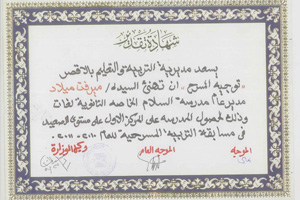 شهادة تقدير
يسعد مديرية التربية والتعليم بالأقصر
"توجيه المسرح" أن تهنئ السيدة/ ميرفت ميلاد
مديرة مدرسة السلام الخاصة الثانوية لغات
وذلك لحصول المدرسة على المركز الأول على مستوى الصعيد
في مسابقة التربية المسرحية للعام ٢٠١٠-٢٠١١
الموجه
الموجه العام
وكيل الوزارة